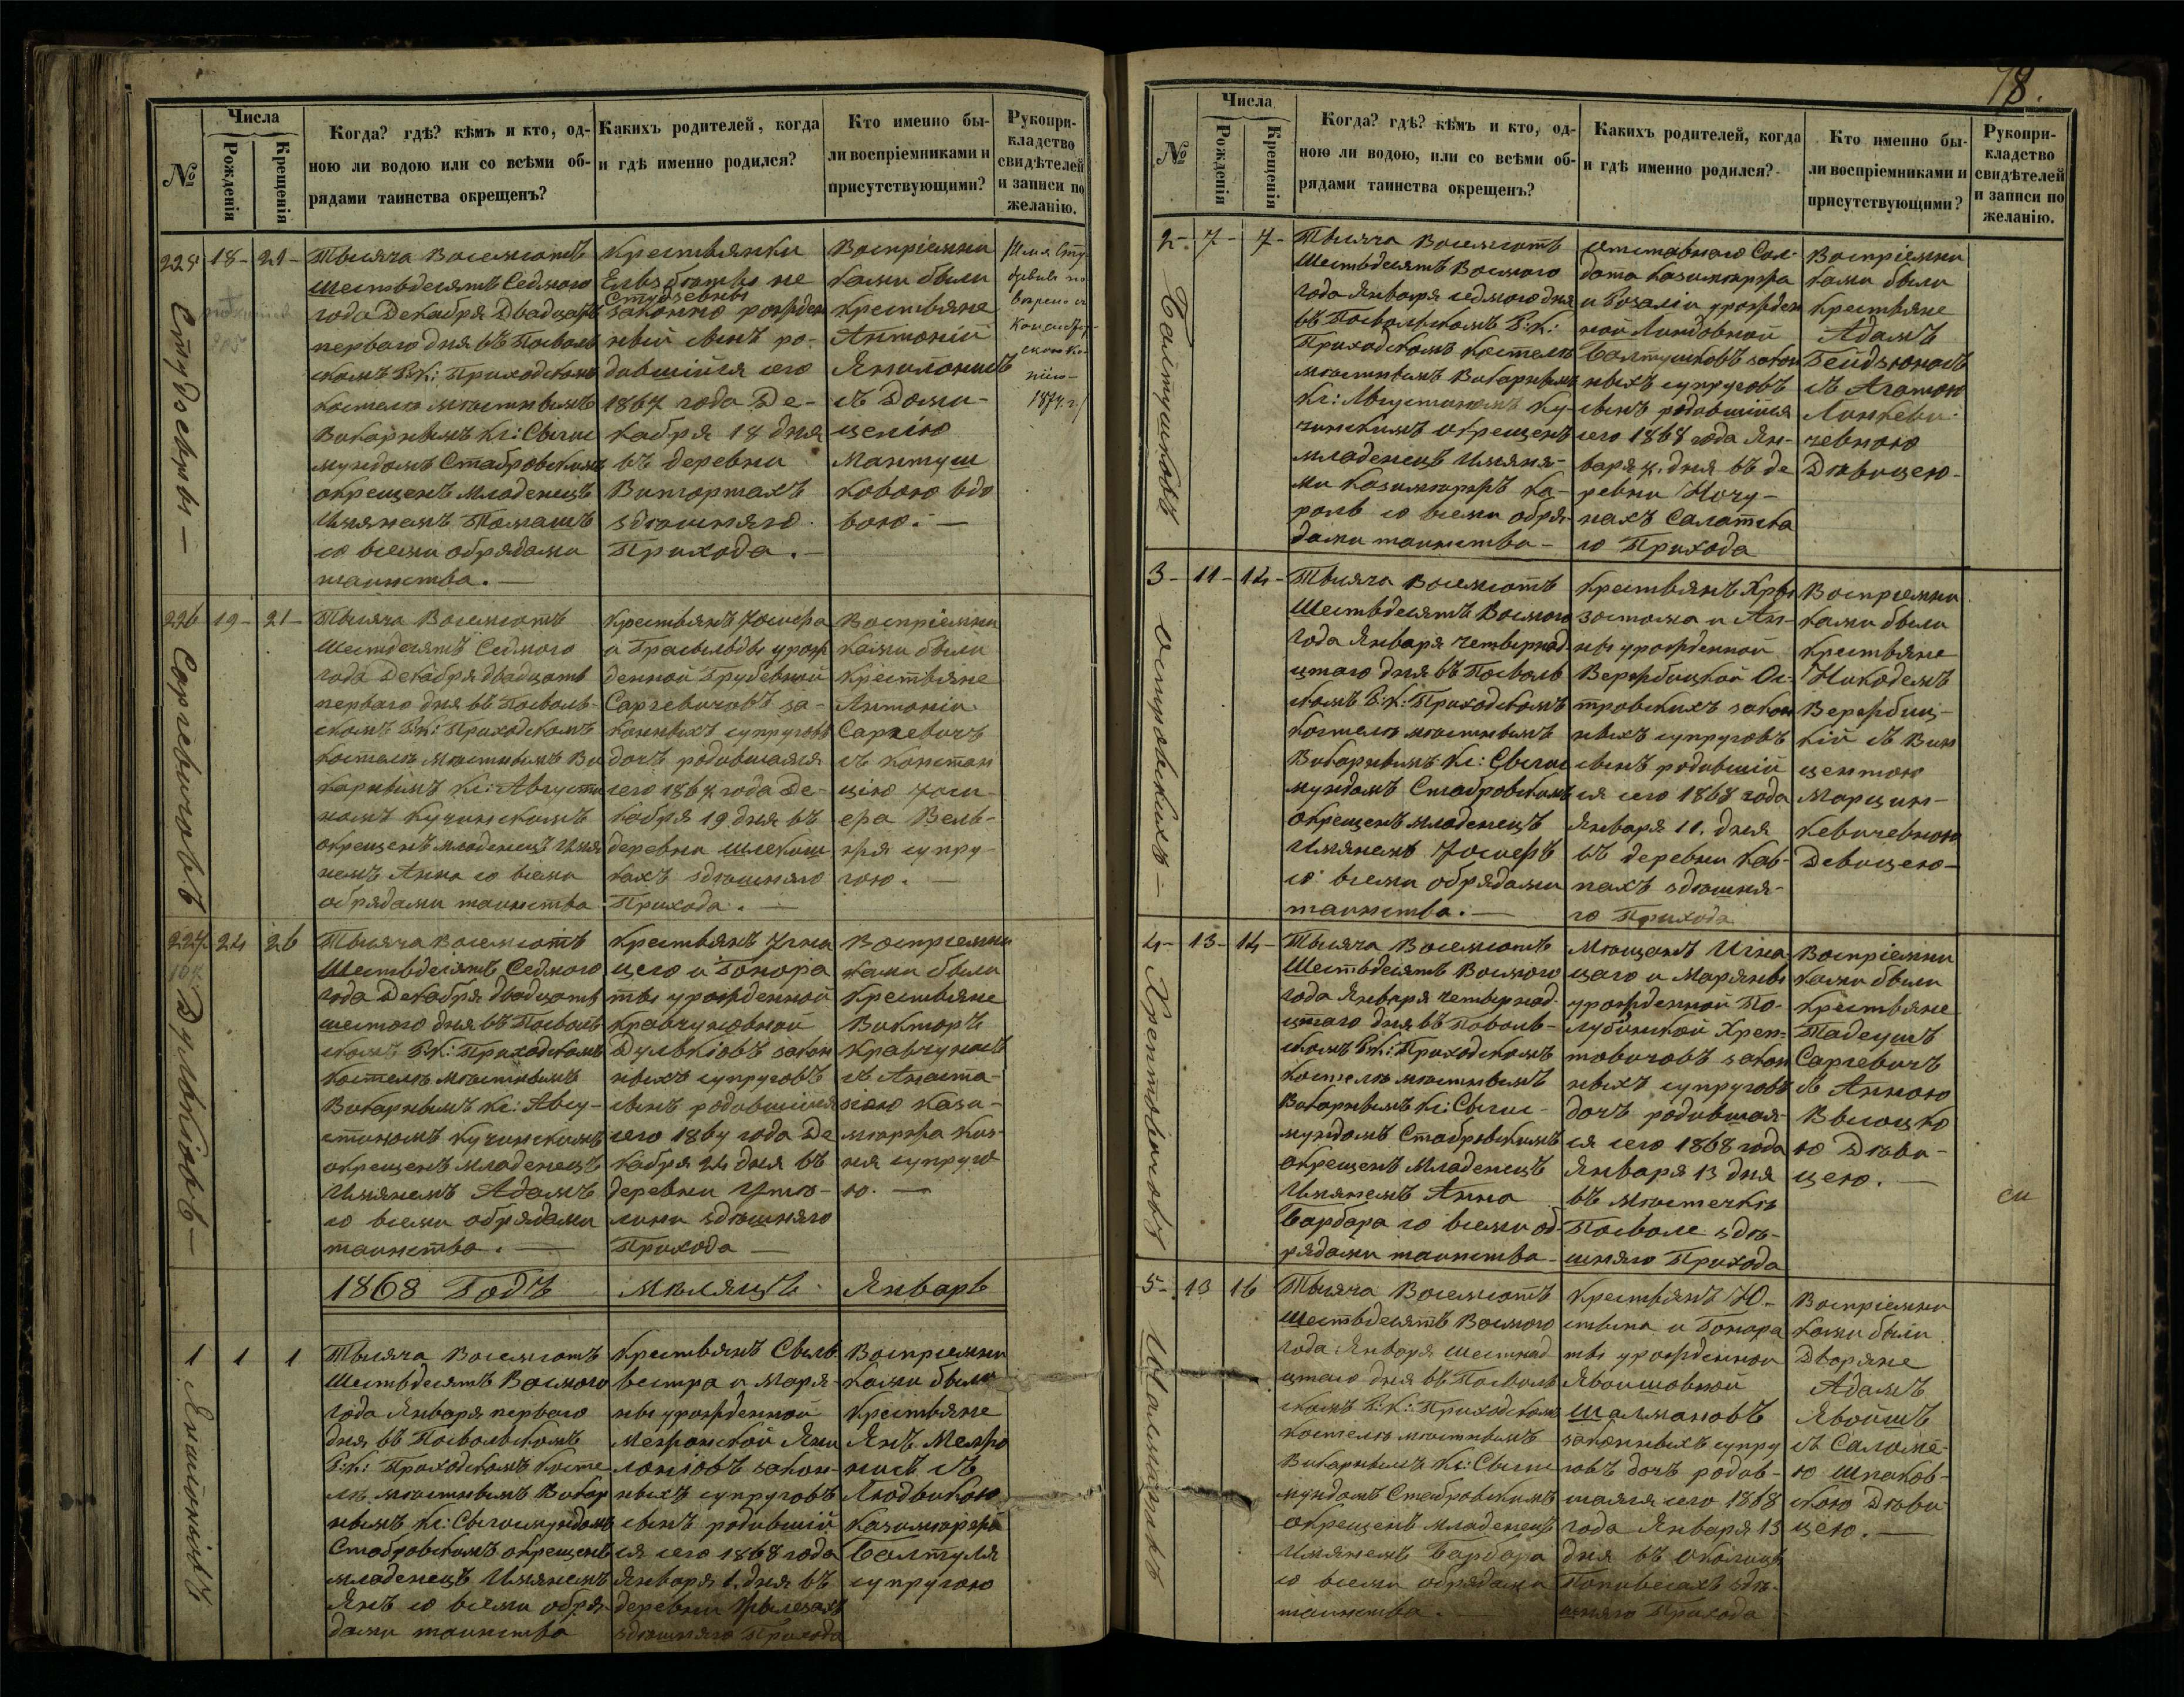 №
Числа
Рожденія
Крещенія
Когда? гдѣ? кѣмъ и кто, од-
ною ли водою или со всѣми об-
рядами таинства окрещенъ?
Какихъ родителей, когда
и гдѣ именно родился?
Кто именно бы-
ли воспріемниками и
присутствующими?
Рукопри-
кладство
свидѣтелей
и записи по
желанію.
225 18- 21-
Тысяча Восемсотъ
Шестьдесятъ Седмого
года Декабря Двадцать
перваго дня въ Посволь
скомъ Р.К: Приходскомъ
костелѣ мѣстнымъ
Викарнымъ Кс: Сыгис
мундомъ Стабровскимъ
окрещенъ младенецъ
Имянемъ Томашъ
со всеми обрядами
таинства. —
Крестьянки
Ельзбѣты не
Студзевны
законно рожден
ный сынъ ро-
дившійся сего
1867 года Де-
кабря 18 дня
въ деревни
здѣшняго
Прихода. —
Воспріемни
ками были
Крестьяне
Антоній
съ Доми-
целію
Мантуш
ковою вдо
вою. —
1874 г.
226 19- 21-
Саргевичовъ
Тысяча Восемсотъ
Шестдесятъ Седмого
года Декабря двадцать
перваго дня въ Посволь-
скомъ Р.К: Приходскомъ
костелѣ мѣстнымъ Ви
карнымъ Кс: Августи
номъ Кучинскимъ
окрещенъ младенецъ Имя
немъ Анна со всеми
обрядами таинства
Крестьянъ Іосифа
денной Грудевной
Саргевичовъ за-
конныхъ супруговъ
дочъ родившаяся
сего 1867 года Де-
кабря 19 дня въ
деревни
кахъ здѣшняго
Прихода. —
Воспріемни
ками были
Крестьяне
Антоній
Саргевичъ
съ Констан
цію Іоси-
фа Вель-
супру-
гою. —
227 24 26
Дулькіовъ —
Тысяча Восемсотъ
Шестьдесятъ Седмого
года Декабря двадцать
шестого дня въ Посволь
скомъ Р.К: Приходскомъ
костелѣ мѣстнымъ
Викарнымъ Кс: Авгу-
стиномъ Кучинскимъ
окрещенъ младенецъ
Имянемъ Адамъ
со всеми обрядами
таинства. —
Крестьянъ Игна
цего и Гонора
ты урожденной
Кравчуновной
Дулькіовъ закон
ныхъ супруговъ
сынъ родившійся
сего 1867 года Де
кабря 24 дня въ
деревни
здѣшняго
Прихода —
Воспріемни
ками были
Крестьяне
Викторъ
Кравчунасъ
съ Анаста-
зіею Кази-
мѣржа
супруго
ю. —
1868 Годъ Мѣсяцъ Январь
1 1 1
Тысяча Восемсотъ
Шестьдесятъ Восмого
года Января перваго
дня въ Посвольскомъ
Р:К: Приходскомъ Косте
лѣ мѣстнымъ Викар
нымъ Кс: Сыгисмундомъ
Стабровскимъ окрещенъ
младенецъ Имянемъ
Янъ со всеми обря-
дами таинства
Крестьянъ Сыль
вестра и Марья-
ны урожденной
лоніовъ закон-
ныхъ супруговъ
сынъ родившій
ся сего 1868 года
Января 1. дня въ
деревни
здѣшняго Прихода
Воспріемни
ками были
Крестьяне
съ
Людвикою
Казимѣржа
Балтуля
супругою
78.
№
Числа
Рожденія
Крещенія
Когда? гдѣ? кѣмъ и кто, од-
ною ли водою, или со всѣми об-
рядами таинства окрещенъ?
Какихъ родителей, когда
и гдѣ именно родился?
Кто именно бы-
ли воспріемниками и
присутствующими?
Рукопри-
кладство
свидѣтелей
и записи по
желанію.
2- 7- 7-
Балтушковъ
Тысяча Восемсотъ
Шестьдесятъ Восмого
года Января седмого дня
въ Посвольскомъ Р:К:
Приходскомъ костелѣ
мѣстнымъ Викарнымъ
Кс: Августиномъ Ку-
чинскимъ окрещенъ
младенецъ Имяня-
ми Казимѣржъ Ка-
роль со всеми обря-
дами таинства —
Отставнаго Сол-
дата Казимѣржа
и Розаліи урожден
ной
Балтушковъ закон
ныхъ супруговъ
сынъ родившійся
сего 1868 года Ян-
варя 7. дня въ де
ревни
нахъ Салатска
го Прихода
Воспріемни
ками были
Крестьяне
Адамъ
съ Агатою
Линкеви-
чевною
Дѣвицею-
3- 11- 14-
Островскихъ —
Тысяча Восемсотъ
Шестьдесятъ Восмого
года Января четырнад
цтаго дня въ Посволь
скомъ Р:К: Приходскомъ
костелѣ мѣстнымъ
Викарнымъ Кс: Сыгис
мундомъ Стабровскимъ
окрещенъ младенецъ
Имянемъ Іосифъ
со всеми обрядами
таинства. —
Крестьянъ Хры
зостома и Ан-
ны урожденной
Вержбицкой Ос-
тровскихъ закон
ныхъ супруговъ
сынъ родившій
ся сего 1868 года
Января 11. дня
въ деревни
здѣшня-
го Прихода
Воспріемни
ками были
Крестьяне
Никодемъ
Вержбиц-
кій съ Вин
центою
Марцин-
кевичевною
Дѣвицею—
4- 13- 14-
Хрептовичовъ
Тысяча Восемсотъ
Шестьдесятъ Восмого
года Января четырнад
цтаго дня въ Посволь-
скомъ Р:К: Приходскомъ
костелѣ мѣстнымъ
Викарнымъ Кс: Сыгис-
мундомъ Стабровскимъ
окрещенъ Младенецъ
Имянемъ Анна
Барбара со всеми об-
рядами таинства —
Мѣщанъ Игна
цаго и Марянны
урожденной По-
Хреп-
товичовъ закон
ныхъ супруговъ
дочъ родившая-
ся сего 1868 года
Января 13 дня
въ мѣстечкѣ
Посволе здѣ-
шняго Прихода
Воспріемни
ками были
Крестьяне
Тадеушъ
Саргевичъ
съ Анною
Высоцко
ю Дѣви-
цею. —
5- 13 16
Шалмановъ
Тысяча Восемсотъ
Шестьдесятъ Восмого
года Января шестнад
цтаго дня въ Посволь
скомъ Р:К: Приходскомъ
костелѣ мѣстнымъ
Викарнымъ Кс: Сыгис
мундомъ Стабровскимъ
окрещенъ младенецъ
Имянемъ Барбара
со всеми обрядами
таинства. —
Крестьянъ Ю-
стина и Гонора
ты урожденной
Явойшовной
Шалмановъ
законныхъ супру
говъ дочъ родив-
шаяся сего 1868
года Января 13
дня въ околицѣ
здѣ-
шняго Прихода
Воспріемни
ками были
Дворяне
Адамъ
Явойшъ
съ Саломе-
ю Шпаков-
скою Дѣви
цею. —